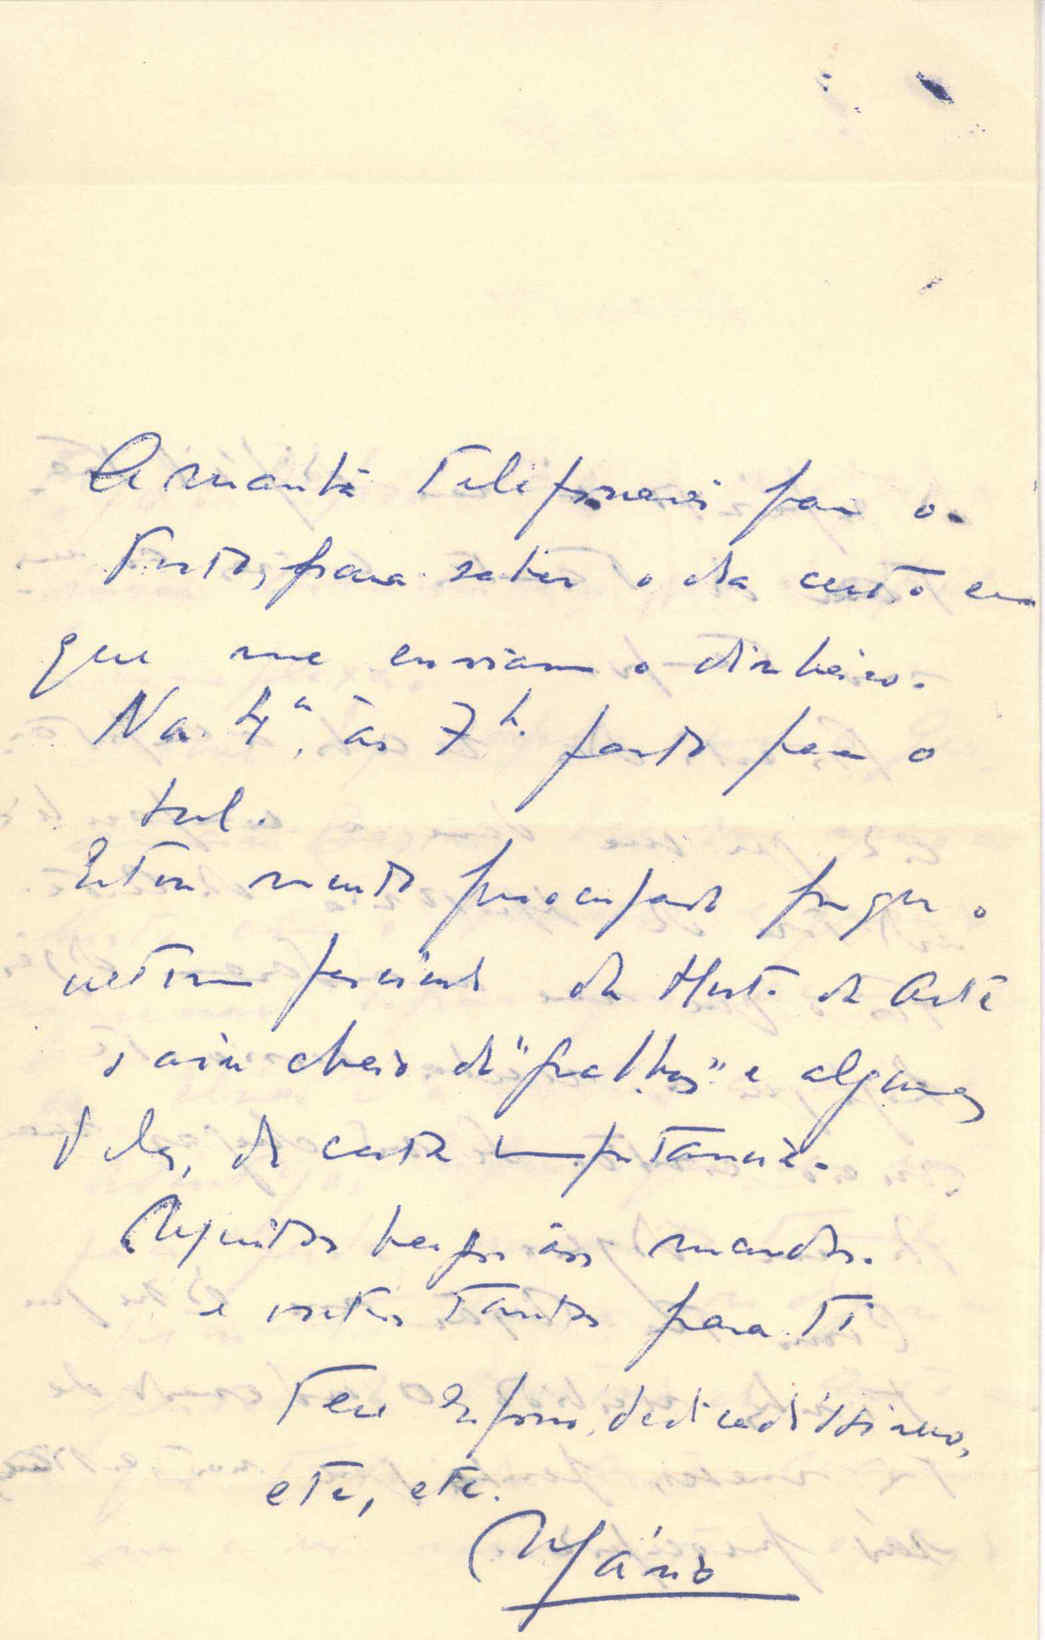 Amanhã telefonarei para o
Porto, para saber o dia certo em
que me enviam o dinheiro.
Na 4ª, às 7h. parto para o
Sul.
Estou muito preocupado porque o
último fascículo da Hist. da Arte
saiu cheio de "gralhas" e algumas
delas, de certa importância.
Muitos beijos às mandas.
e outros tantos para ti
Teu Esposo, dedicadíssimo,
etc, etc.
Mário